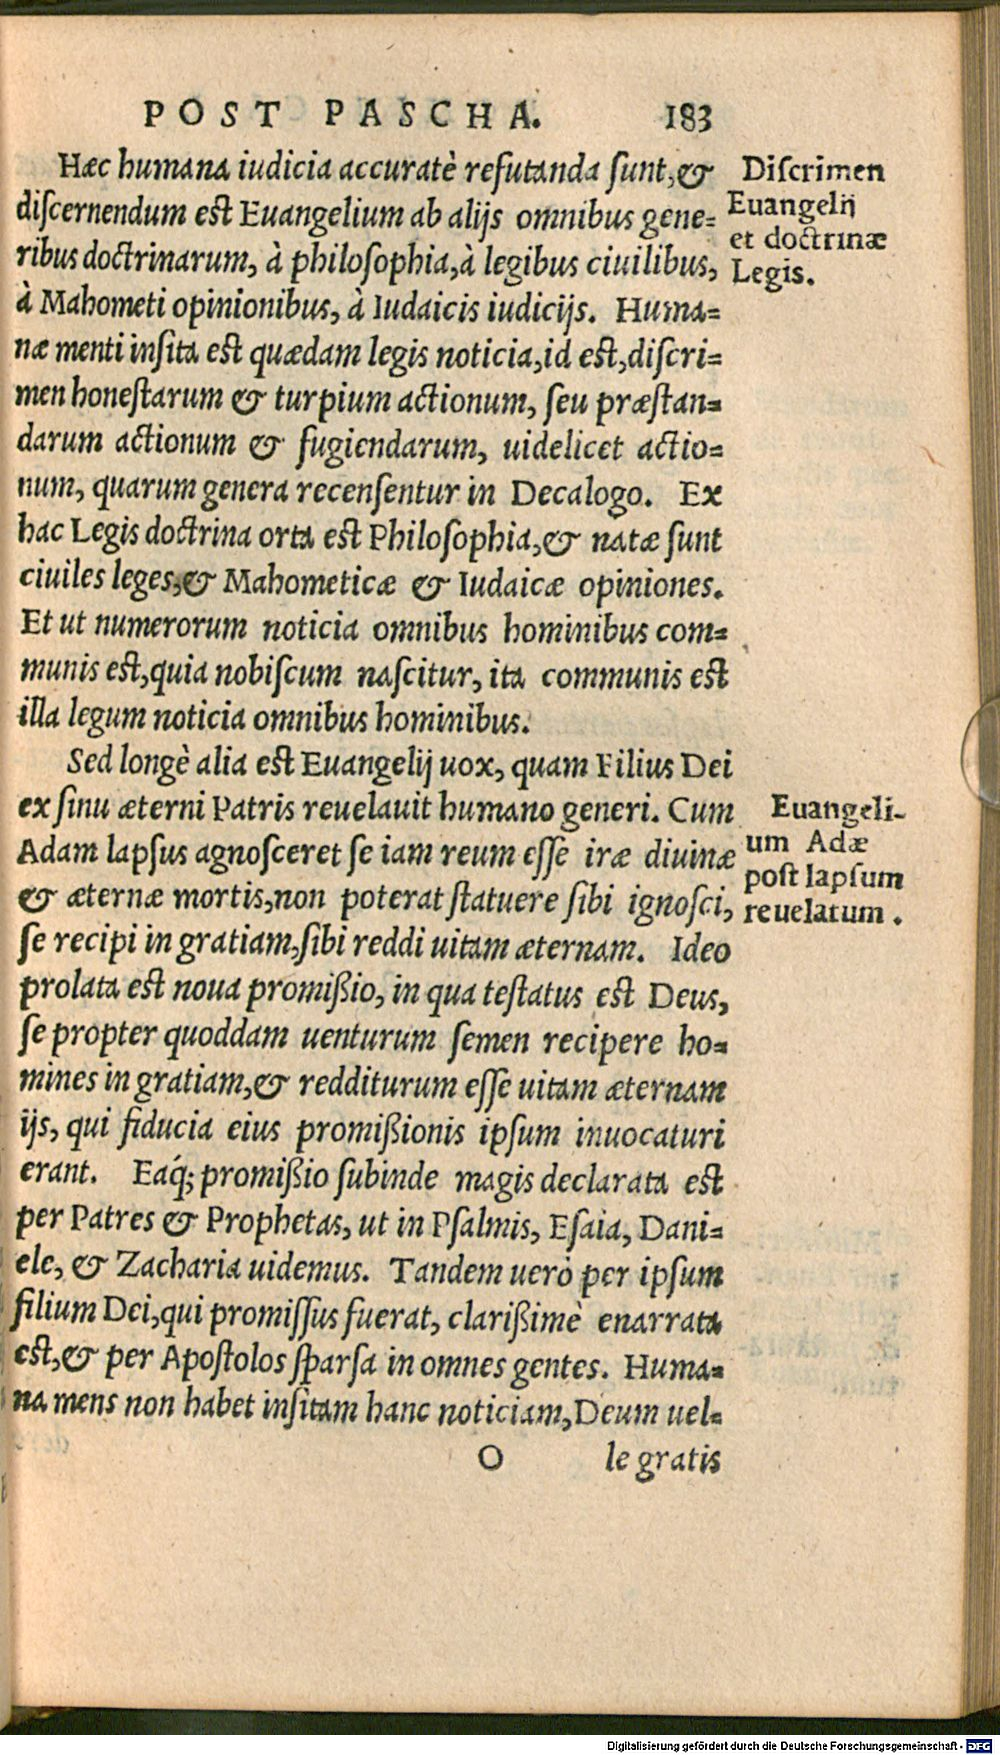 POST PASCHA. 183
Hæc humana iudicia accuratè refutanda ſunt, &
diſcernendum eſt Euangelium ab alijs omnibus gene=
ribus doctrinarum, à philoſophia, à legibus ciuilibus,
à Mahometi opinionibus, à Iudaicis iudicijs. Huma=
næ menti inſita eſt quædam legis noticia, id eſt, diſcri=
men honeſtarum & turpium actionum, ſeu præſtan=
darum actionum & fugiendarum, uidelicet actio=
num, quarum genera recenſentur in Decalogo. Ex
hac Legis doctrina orta eſt Philoſophia, & natæ ſunt
ciuiles leges, & Mahometicæ & Iudaicæ opiniones.
Et ut numerorum noticia omnibus hominibus com=
munis eſt, quia nobiſcum naſcitur, ita communis eſt
illa legum noticia omnibus hominibus.
Diſcrimen
Euangelij
et doctrinæ
Legis.
Sed longè alia eſt Euangelij uox, quam Filius Dei
ex ſinu æterni Patris reuelauit humano generi. Cum
Adam lapſus agnoſceret ſe iam reum eſſe iræ diuinæ
& æternæ mortis, non poterat ſtatuere ſibi ignoſci,
ſe recipi in gratiam, ſibi reddi uitam æternam. Ideo
prolata eſt noua promißio, in qua teſtatus eſt Deus,
ſe propter quoddam uenturum ſemen recipere ho=
mines in gratiam, & redditurum eſſe uitam æternam
ijs, qui fiducia eius promißionis ipſum inuocaturi
erant. Eáq́; promißio ſubinde magis declarata eſt
per Patres & Prophetas, ut in Pſalmis, Eſaia, Dani=
ele, & Zacharia uidemus. Tandem uerò per ipſum
filium Dei, qui promiſſus fuerat, clarißimè enarrata
eſt, & per Apoſtolos ſparſa in omnes gentes. Huma=
na mens non habet inſitam hanc noticiam, Deum uel=
Euangeli-
um Adæ
poſt lapſum
reuelatum.
O le gratis
Digitalisierung gefördert durch die Deutsche Forschungsgemeinschaft - DFG